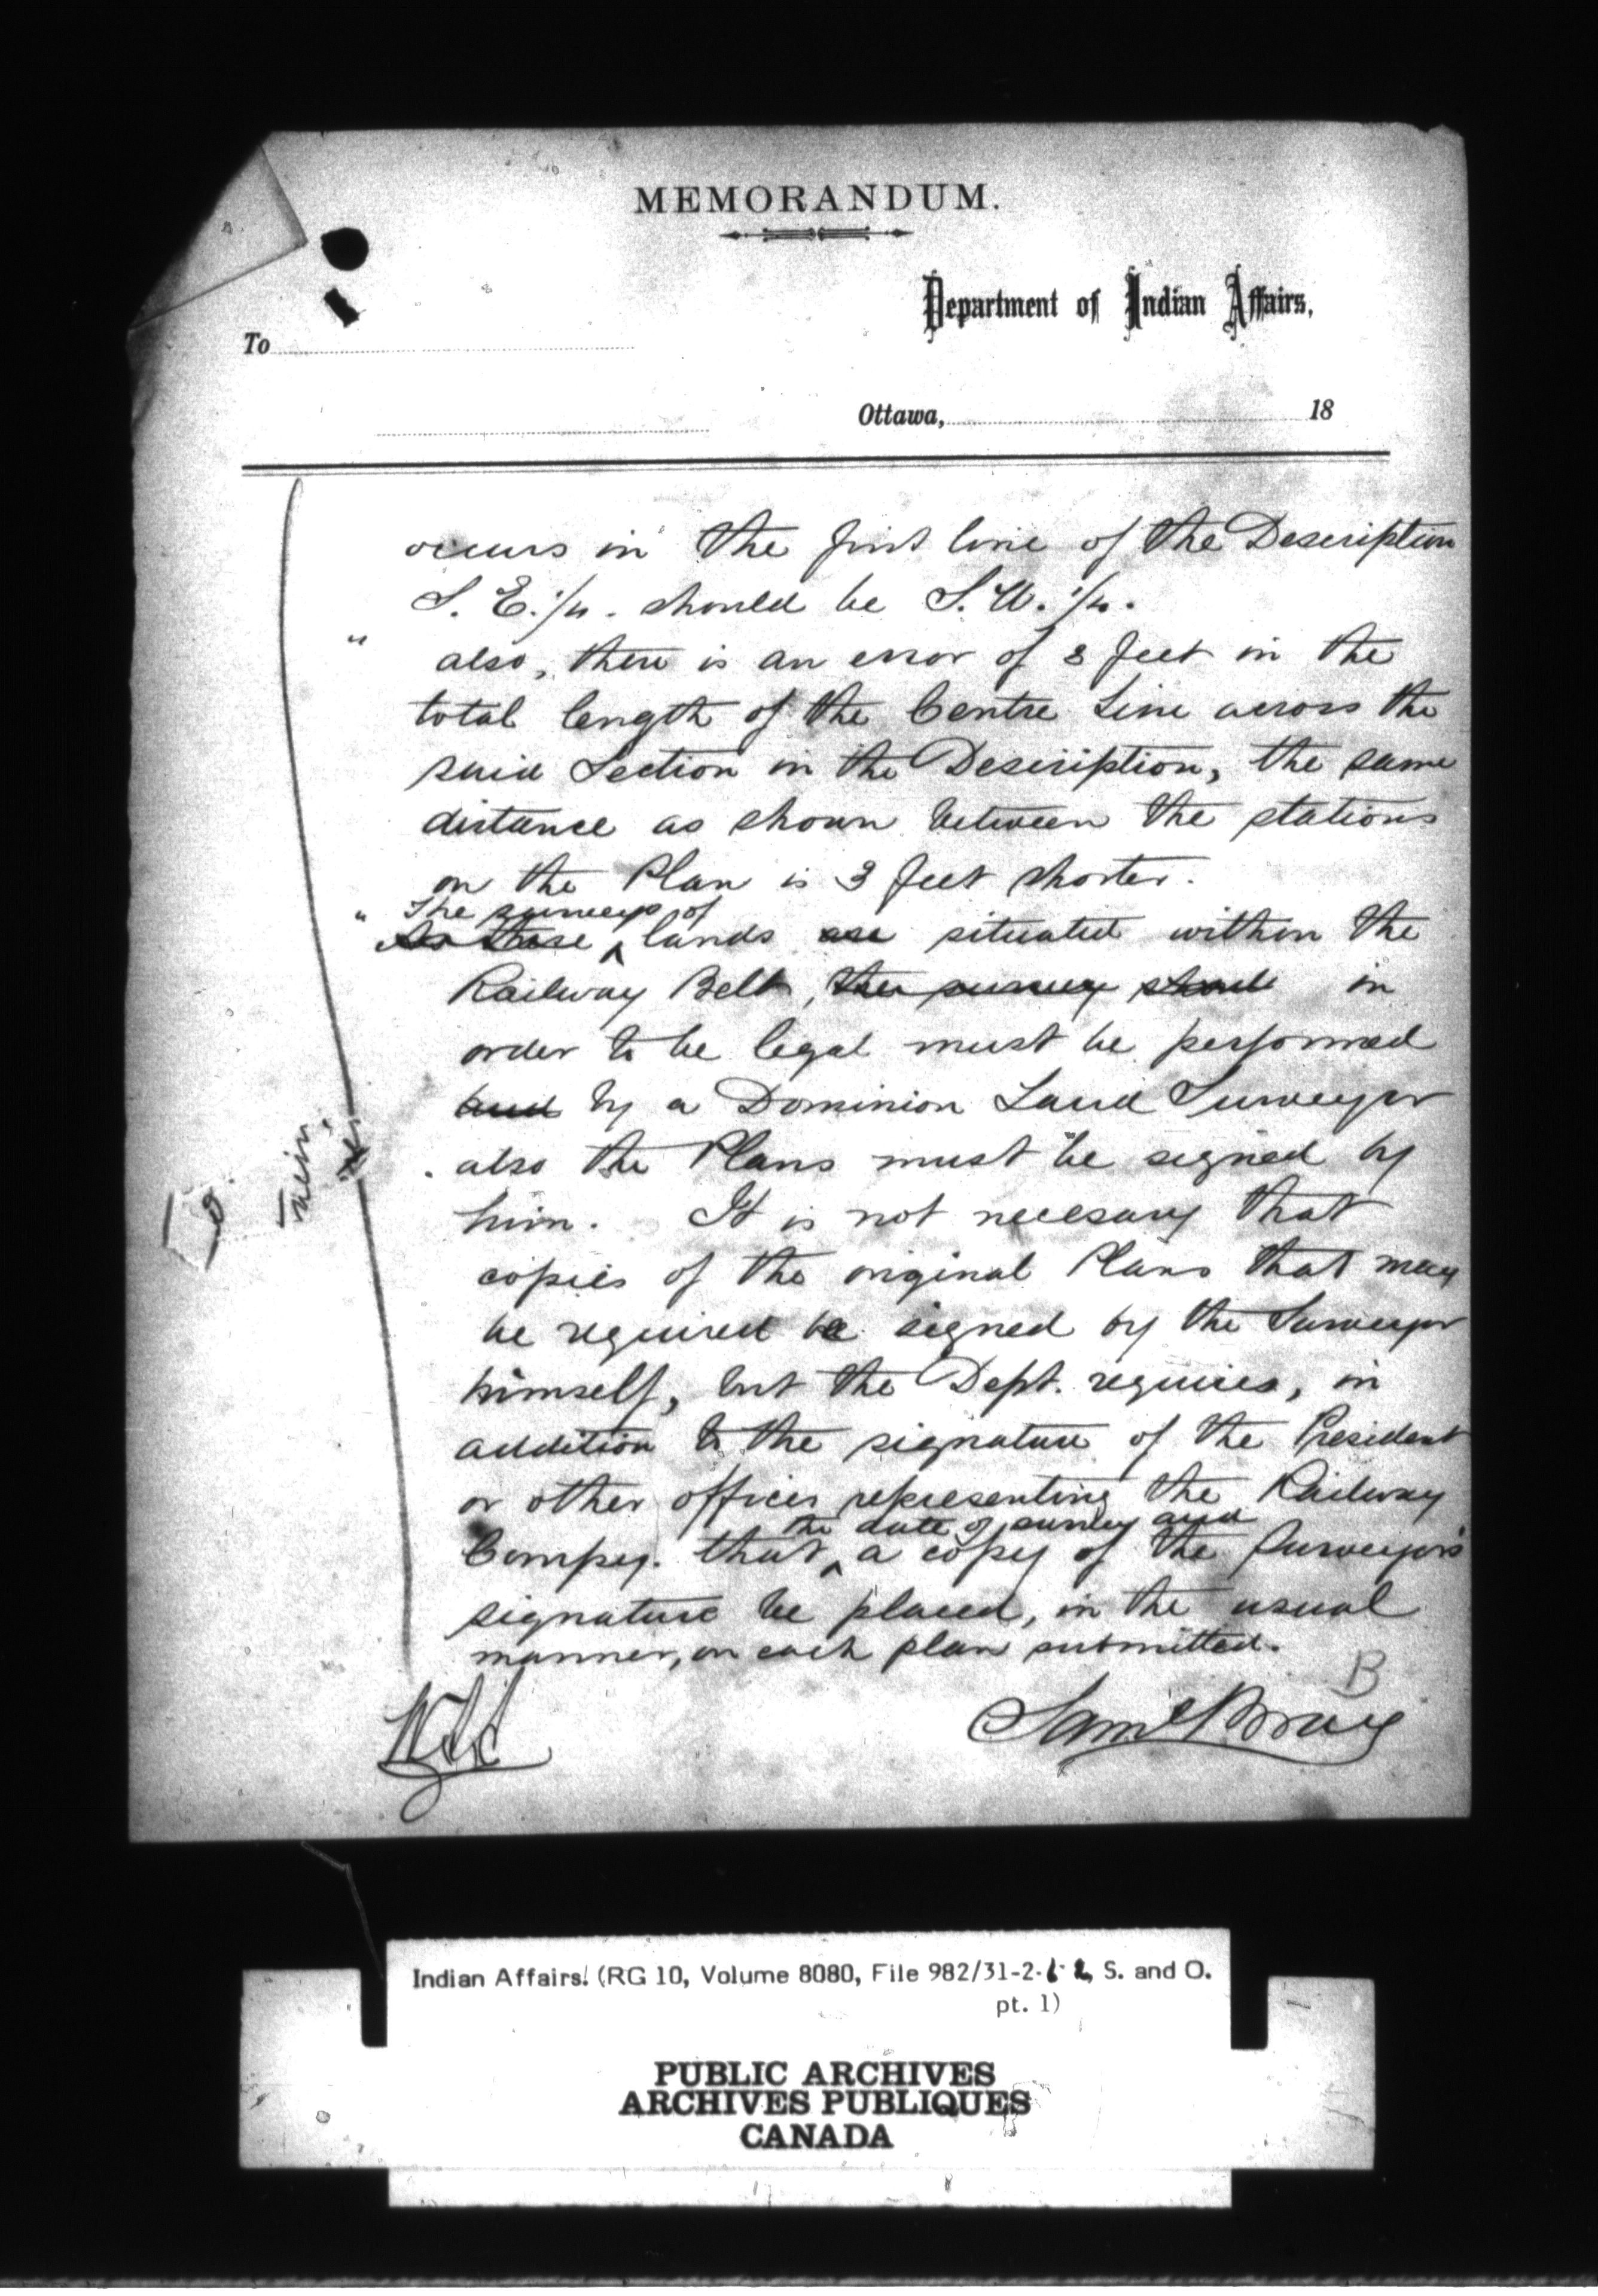 MEMORANDUM.
Department of Indian Affairs,
To
Ottawa, 18
occurs in the first line of the Description
S. E. 1/4. should be S. W. 1/4.
" also, there is an error of 3 feet in the
total length of the Centre Line across the
said Section in the Description, the same
distance as shown between the stations
on the Plan is 3 feet shorter.
" The surveys of
As these ^ lands are situated within the
Railway Belt, the survey shoul in
order to be legal must be performed
and by a Dominion Land Surveyor
also the Plans must be signed by
him. It is not necesary that
copies of the original Plans that may
be required be signed by the Surveyor
himself, but the Dept. requires, in
addition to the signature of the President
or other officer representing the Railway
the date of survey and
Compy. that ^ a copy of the Surveyor's
signature be placed, in the usual
manner, on each plan submitted.
B
Saml Bray
Indian Affairs. (RG 10, Volume 8080, File 982/31-2- S. and O.
pt. 1)
PUBLIC ARCHIVES
ARCHIVES PUBLIQUES
CANADA